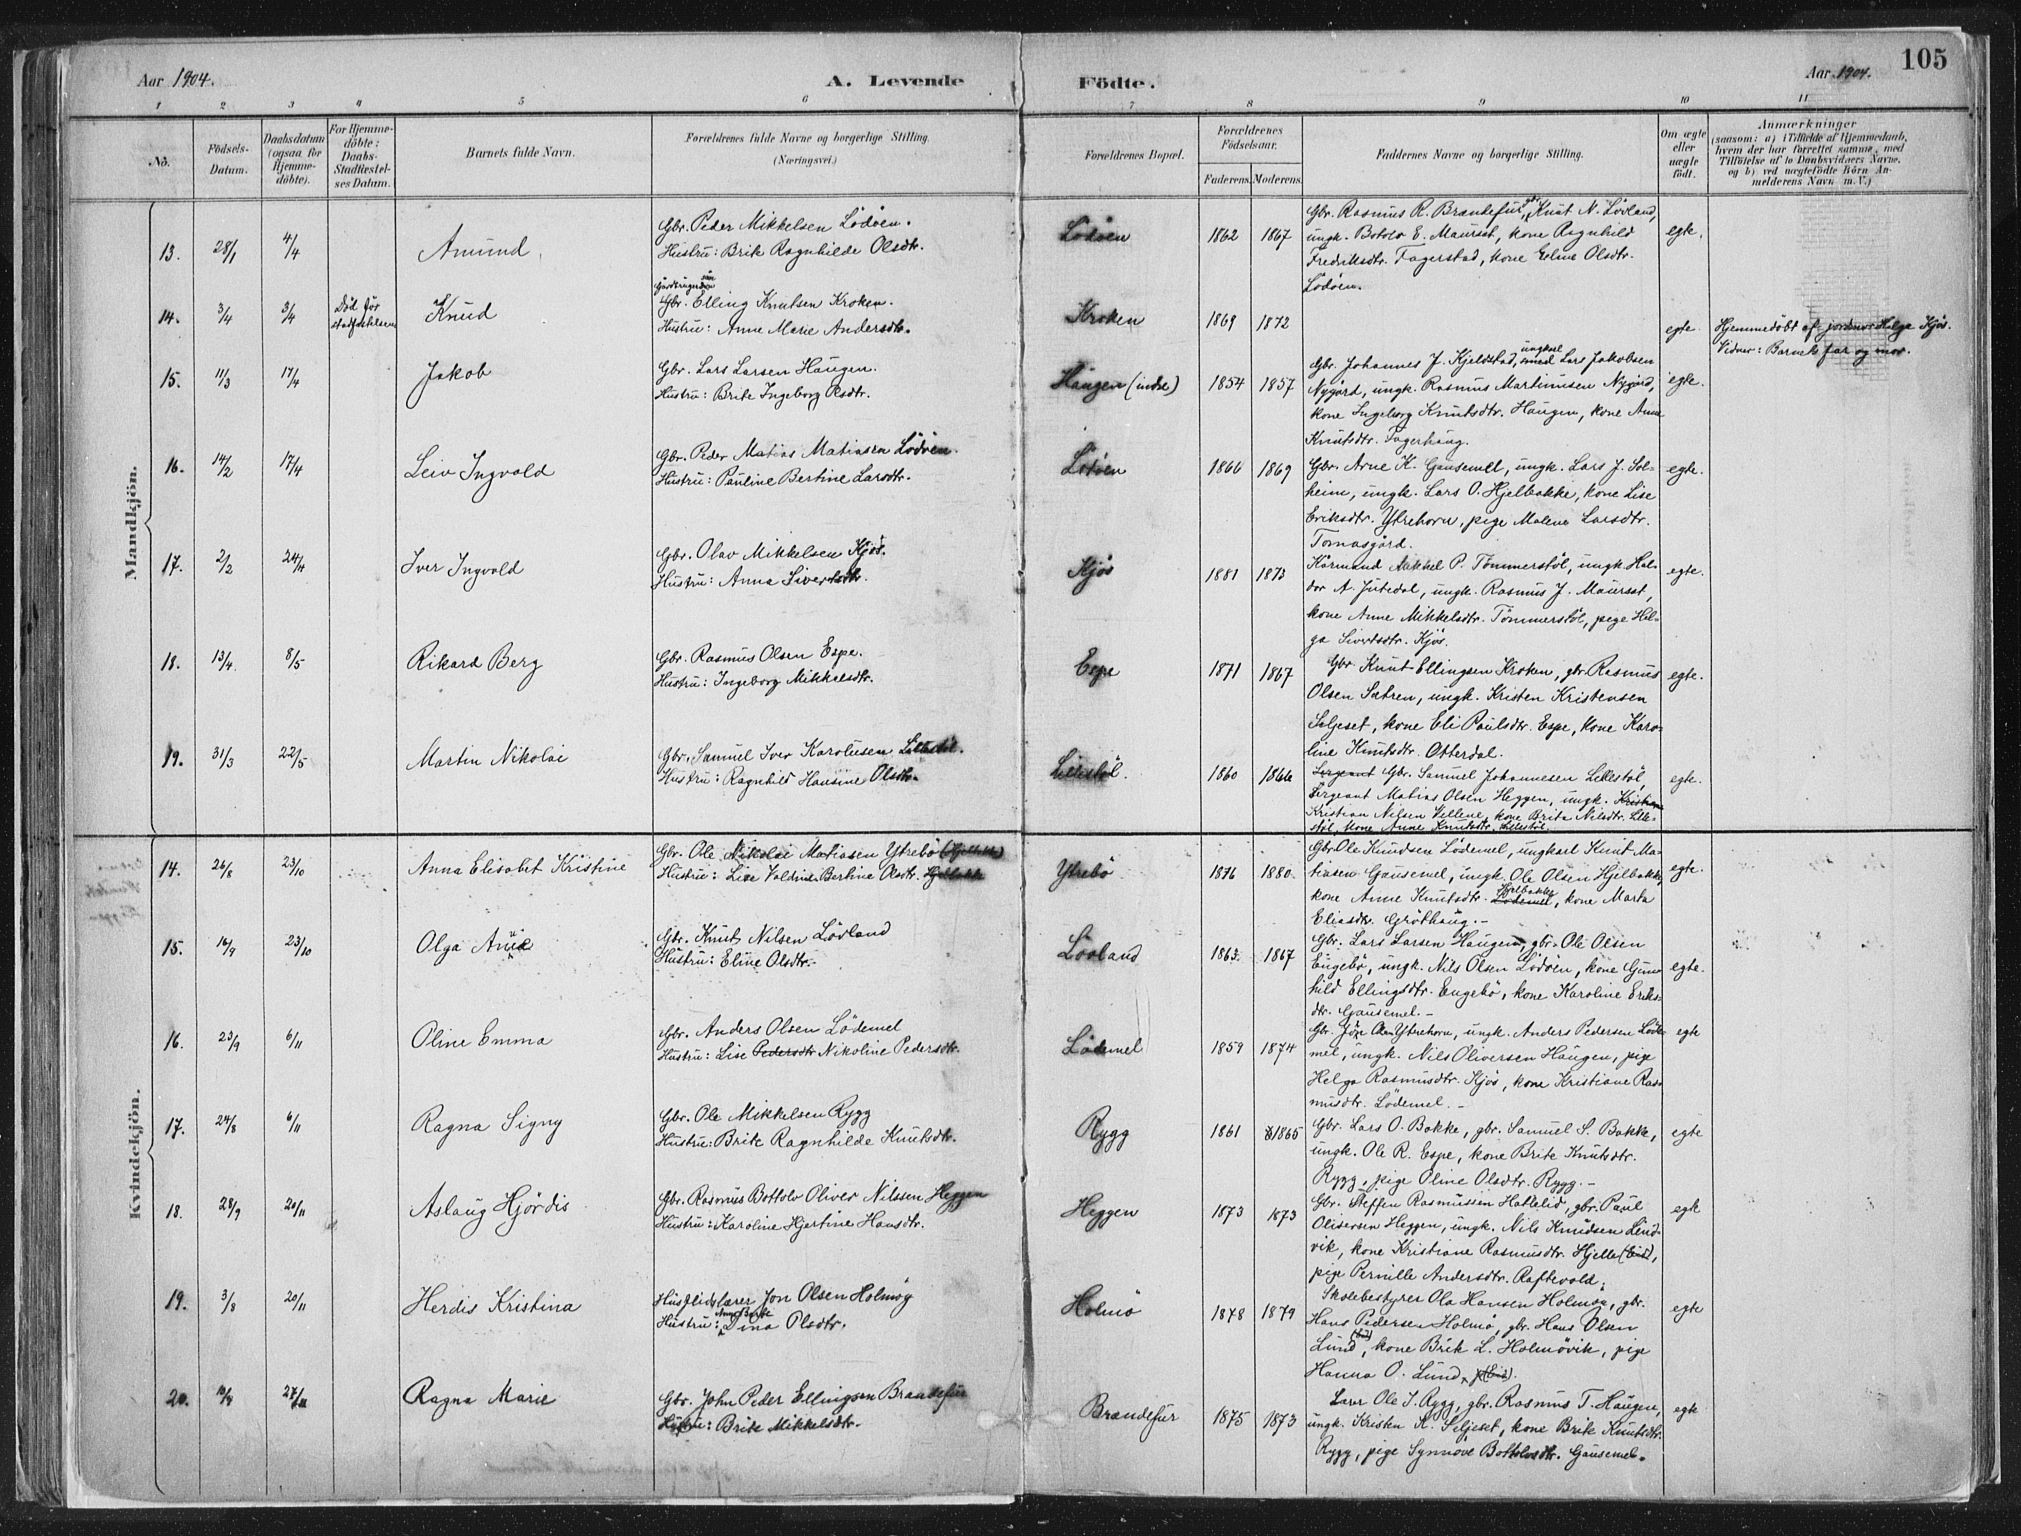 105
Aar 1904.
A. Levende Födte.
Aar 1904.
1 2 3 4 5 6 7 8 9 10 11
No.
Födsels-Datum.
Daabsdatum (ogsaa for Hjemme-döbte).
For Hjemme-döbte: Daabs-Stadfæstel-ses Datum.
Barnets fulde Navn.
Forældrenes fulde Navne og borgerlige Stilling.
(Næringsvei.)
Forældrenes Bopæl.
Forældrenes Födselsaar.
Faderens. Moderens.
Faddernes Navne og borgerlige Stilling.
Om ægte eller uægte födt.
Anmærkninger
(saasom: a) i Tilfælde af Hjemmedaab,
hvem der har forrettet samme, med
Tilföielse af to Daabsvidners Navne,
og b) ved uægtefödte Börn An-
melderens Navn m. V.)
Mandkjön.
13. 28/1 4/4 Amund
Gbr. Peder Mikkelsen Lödöen.
Hustru: Brite Ragnhilde Olsdtr.
Lödöen 1862 1867
Gbr. Rasmus R. Brandefur, gbr. Knut N. Lövland,
ungk. Botolv E. Maurset, kone Ragnhild
Fredriksdtr. Fagerstad, kone Eline Olsdtr.
Lödöen.
egte.
14. 3/4 3/4 Död för stadfæstelsen Knud
Gbr. Elling Knutsen Kroken.
Hustru: Anne Marie Andersdtr.
Kroken 1869 1872
egte
Hjemmedöbt af jordmor Helga Kjös.
Vidner: Barnets far og mor.
15. 11/3 17/4 Jakob
Gbr. Lars Larsen Haugen.
Hustru: Brite Ingeborg Olsdtr.
Haugen (indre) 1854 1857
Gbr. Johannes J. Kjeldstad, ungkarl Lars Jakobsen
Nygård, ungk. Rasmus Martinusen Nygård,
kone Ingeborg Knutsdtr. Haugen, kone Anne
Knutsdtr. Fagerhaug.
egte.
16. 14/2 17/4 Leiv Ingvald
Gbr. Peder Matias Matiasen Lödöen.
Hustru: Pauline Bertine Larsdtr.
Lödöen 1866 1869
Gbr. Arne K. Gausemel, ungk. Lars J. Sol-
heim, ungk. Lars O. Hjelbakke, kone Lise
Eriksdtr. Ytrehorn, pige Malene Larsdtr.
Tomasgård.
egte.
17. 2/2 24/4 Iver Ingvald
Gbr. Olav Mikkelsen Kjös.
Hustru: Anna Sivertsdtr.
Kjös 1881 1873
Kårmand Mikkel P. Tömmerstöl, ungk. Hal-
dor A. Jutedal, ungk. Rasmus J. Maurset,
kone Anne Mikkelsdtr. Tömmerstöl, pige Hel-
ga Sivertsdtr. Kjös.
egte.
18. 13/4 8/5 Rikard Berg
Gbr. Rasmus Olsen Espe.
Hustru: Ingeborg Mikkelsdtr.
Espe 1871 1867
Gbr. Knut Ellingsen Kroken, gbr. Rasmus
Olsen Sætren, ungk. Kristen Kristensen
Seljeset, kone Eli Paulsdtr. Espe, kone Karo-
line Knutsdtr. Otterdal.
egte.
19. 31/3 22/5 Martin Nikolai
Gbr. Samuel Iver Karolusen Lillestöl.
Hustru: Ragnhild Hansine Olsdtr.
Lillestöl. 1860 1866
Sergeant Gbr. Samuel Johannesen Lillestöl,
Sergeant Matias Olsen Heggen, ungk. Kristian
Kristian Nilsen Vellene, kone Brite Nilsdtr. Lille-
stöl, kone Anne Knutsdtr. Lillestöl.
egte.
Kvindekjön.
14. 26/8 23/10 Anna Elisabet Kristine
Gbr. Ole Nikolai Matiasen Ytrebö
Hustru: Lise Valdine Bertine Olsdtr. Hjelbakke
Ytrebö 1876 1880
Gbr. Ole Knudsen Lödemel, ungkarl Knut Ma-
tiasen Gausemel, ungk. Ole Olsen Hjelbakke,
kone Anne Knutsdtr. Lödemel Hjelbakke, kone Marta
Eliasdtr. Gröthaug.-
egte.
15. 16/9 23/10 Olga Anna
Gbr. Knut Nilsen Lövland
Hustru: Eline Olsdtr.
Lövland 1863 1867
Gbr. Lars Larsen Haugen, gbr. Ole Olsen
Engebö, ungk. Nils Olsen Lödöen, kone Gun-
hild Ellingsdtr. Engebö, kone Karoline Eriks-
dtr. Gausemel.-
egte.
16. 23/9 6/11 Oline Emma
Gbr. Anders Olsen Lödemel
Hustru: Lise Pedersdtr Nikoline Pedersdtr.
Lödemel 1859 1874
Gbr. Jon Olsen Ytrehorn, ungk. Anders Pedersen Löde-
mel, ungk. Nils Oliversen Haugen, pige
Helga Rasmusdtr. Kjös, kone Kristiane Ras-
musdtr. Lödemel.-
egte
17. 24/8 6/11 Ragna Signy
Gbr. Ole Mikkelsen Rygg
Hustru: Brite Ragnhilde Knutsdtr.
Rygg 1861 1865
Gbr. Lars O. Bakke, gbr. Samuel S. Bakke,
ungk. Ole R. Espe, kone Brite Knutsdtr.
Rygg, pige Oline Olsdtr. Rygg.-
egte
18. 28/9 20/11 Aslaug Hjördis
Gbr. Rasmus Bottolv Oliver Nilssen Heggen
Hustru: Karoline Hjertine Hansdtr.
Heggen 1873 1873
Gbr. Steffen Rasmussen Hattelid, gbr. Paul
Oliversen Heggen, ungk. Nils Knudsen Lind-
vik, kone Kristiane Rasmusdtr. Hjelle,
pige Pernille Andersdtr. Raftevold.
egte
19. 3/8 20/11 Herdis Kristina
Husflidslærer Jon Olsen Holmöy
Hustru: Anne Berte Dina Olsdtr.
Holmö 1878 1879
Skolebestyrer Ola Hansen Holmöy, gbr.
Hans Pedersen Holmö, gbr. Hans Olsen
Lund, kone Brite L. Holmövik, pige
Hanna O. Lund
egte
20. 10/9 27/11 Ragna Marie
Gbr. John Peder Ellingsen Brandefur
Hustru: Brite Mikkelsdtr.
Brandefur 1875 1873
Lærer Ole I. Rygg, gbr. Rasmus T. Haugen,
ungk. Kristen K. Seljeset, kone Brite Knutsdtr.
Rygg, pige Synnöve Bottolvsdtr. Gausemel.
egte